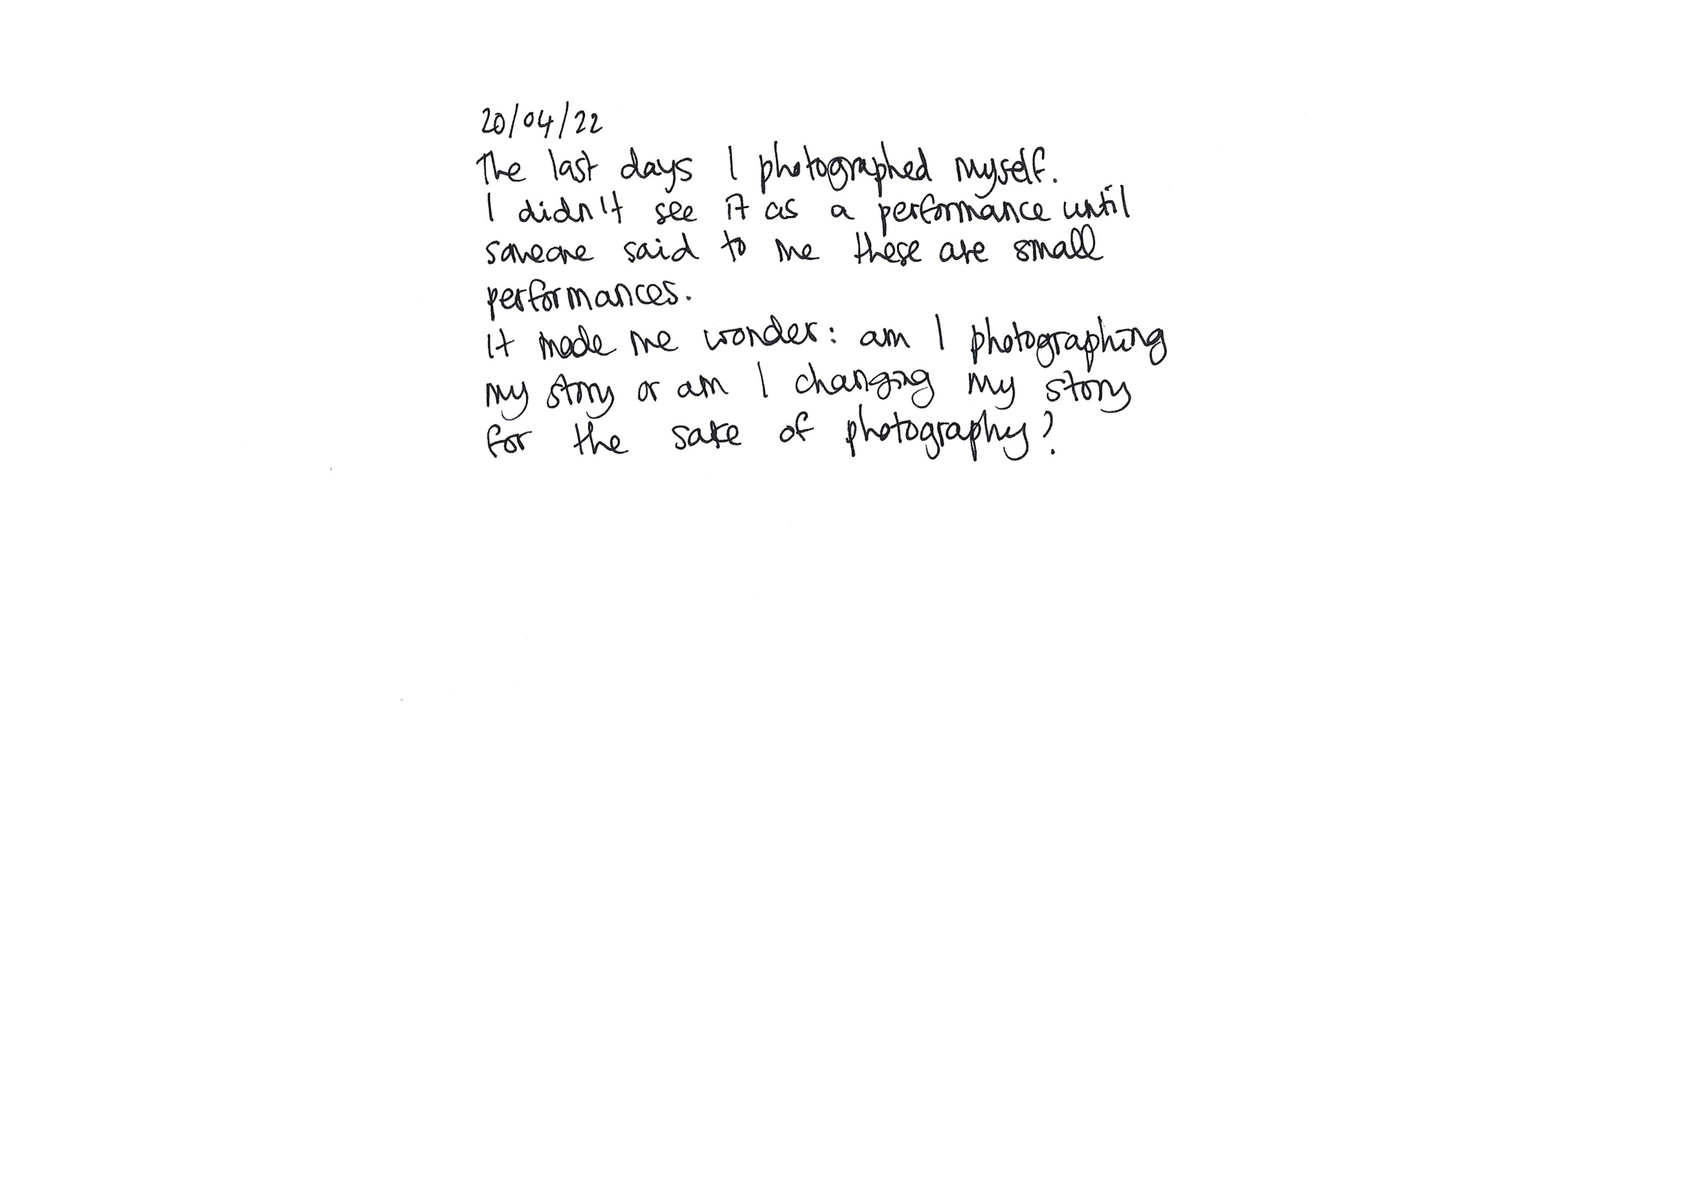 20/04/22
The last days I photographed myself.
I didn't see it as a performance until
someone said to me these are small
performances.
It made me wonder: am I photographing
my story or am I changing my story
for the sake of photography?